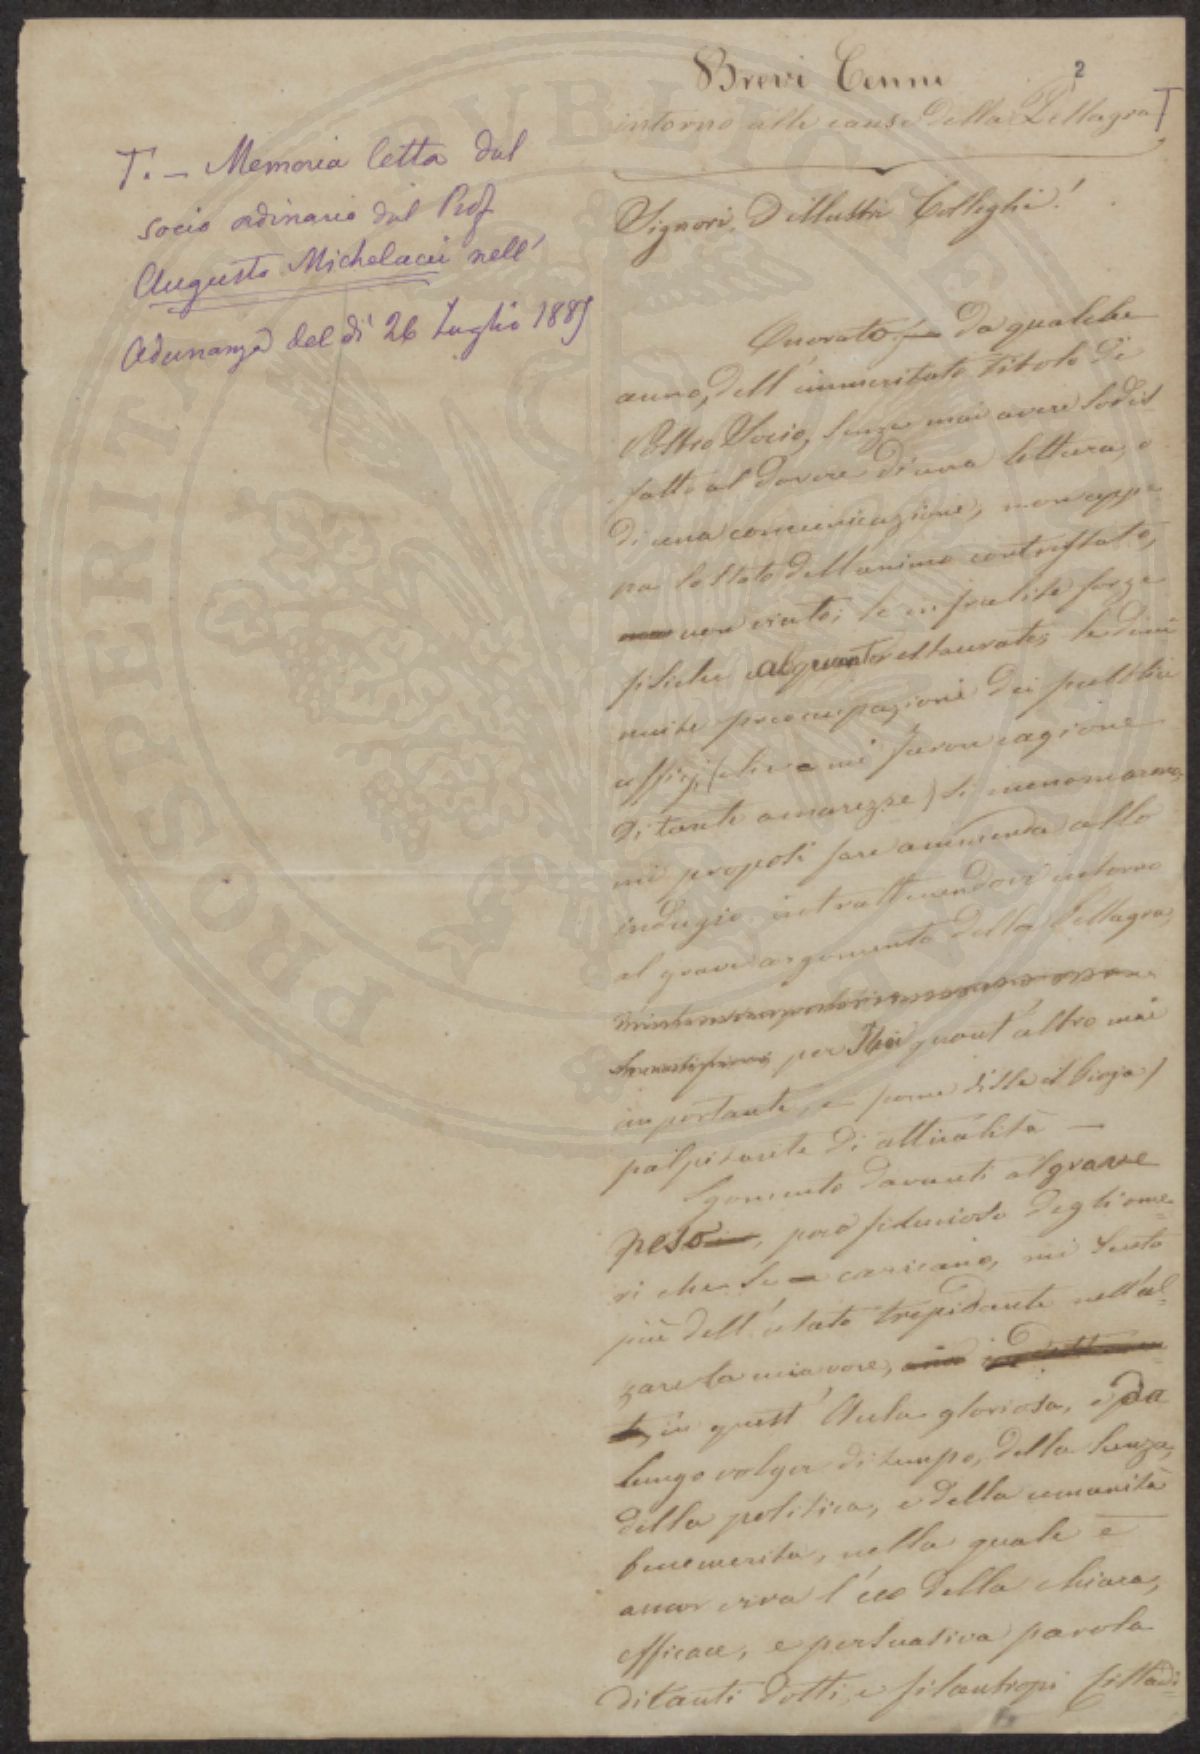 2
Brevi Cenni
intorno alle cause della Pellagra T
T. — Memoria letta dal
socio ordinario dal Prof
Augusto Michelacci nell'
Adunanza del dì 26 Luglio 1885
Signori, ed illustri Colleghi!
Onorato da qualche
anno, dell'immeritato titolo di
Vostro Socio, senza mai avere sodis
fatto al dovere di una lettura, o
di una comunicazione, non appe
na lo stato dell'animo contristato,
non vinto; le infralite forze
fisiche alquanto restaurate; le dimi
nuite preoccupazioni dei pubblici
uffizj, (che mi furon cagione
di tante amarezze) si menomarono,
mi proposi fare ammenda allo
indugio intrattenendovi intorno
al grave argomento della Pellagra,
per quant'altro mai
importante, e (come disse il
palpitante di attualità —
Sgomento davanti al grave
peso, però fiducioso degli ome
ri che se ne caricano, mi sento
più dell'usato trepidante nell'al
zare la mia voce,
in quest'Aula gloriosa, e da
lungo volger di tempo, della
della politica, e della umanità
benemerita, nella quale è
ancor viva l'eco della chiara,
efficace, e persuasiva parola
di tanti dotti, e filantropi Cittadi
PROSPERITÀ PUBLICAE